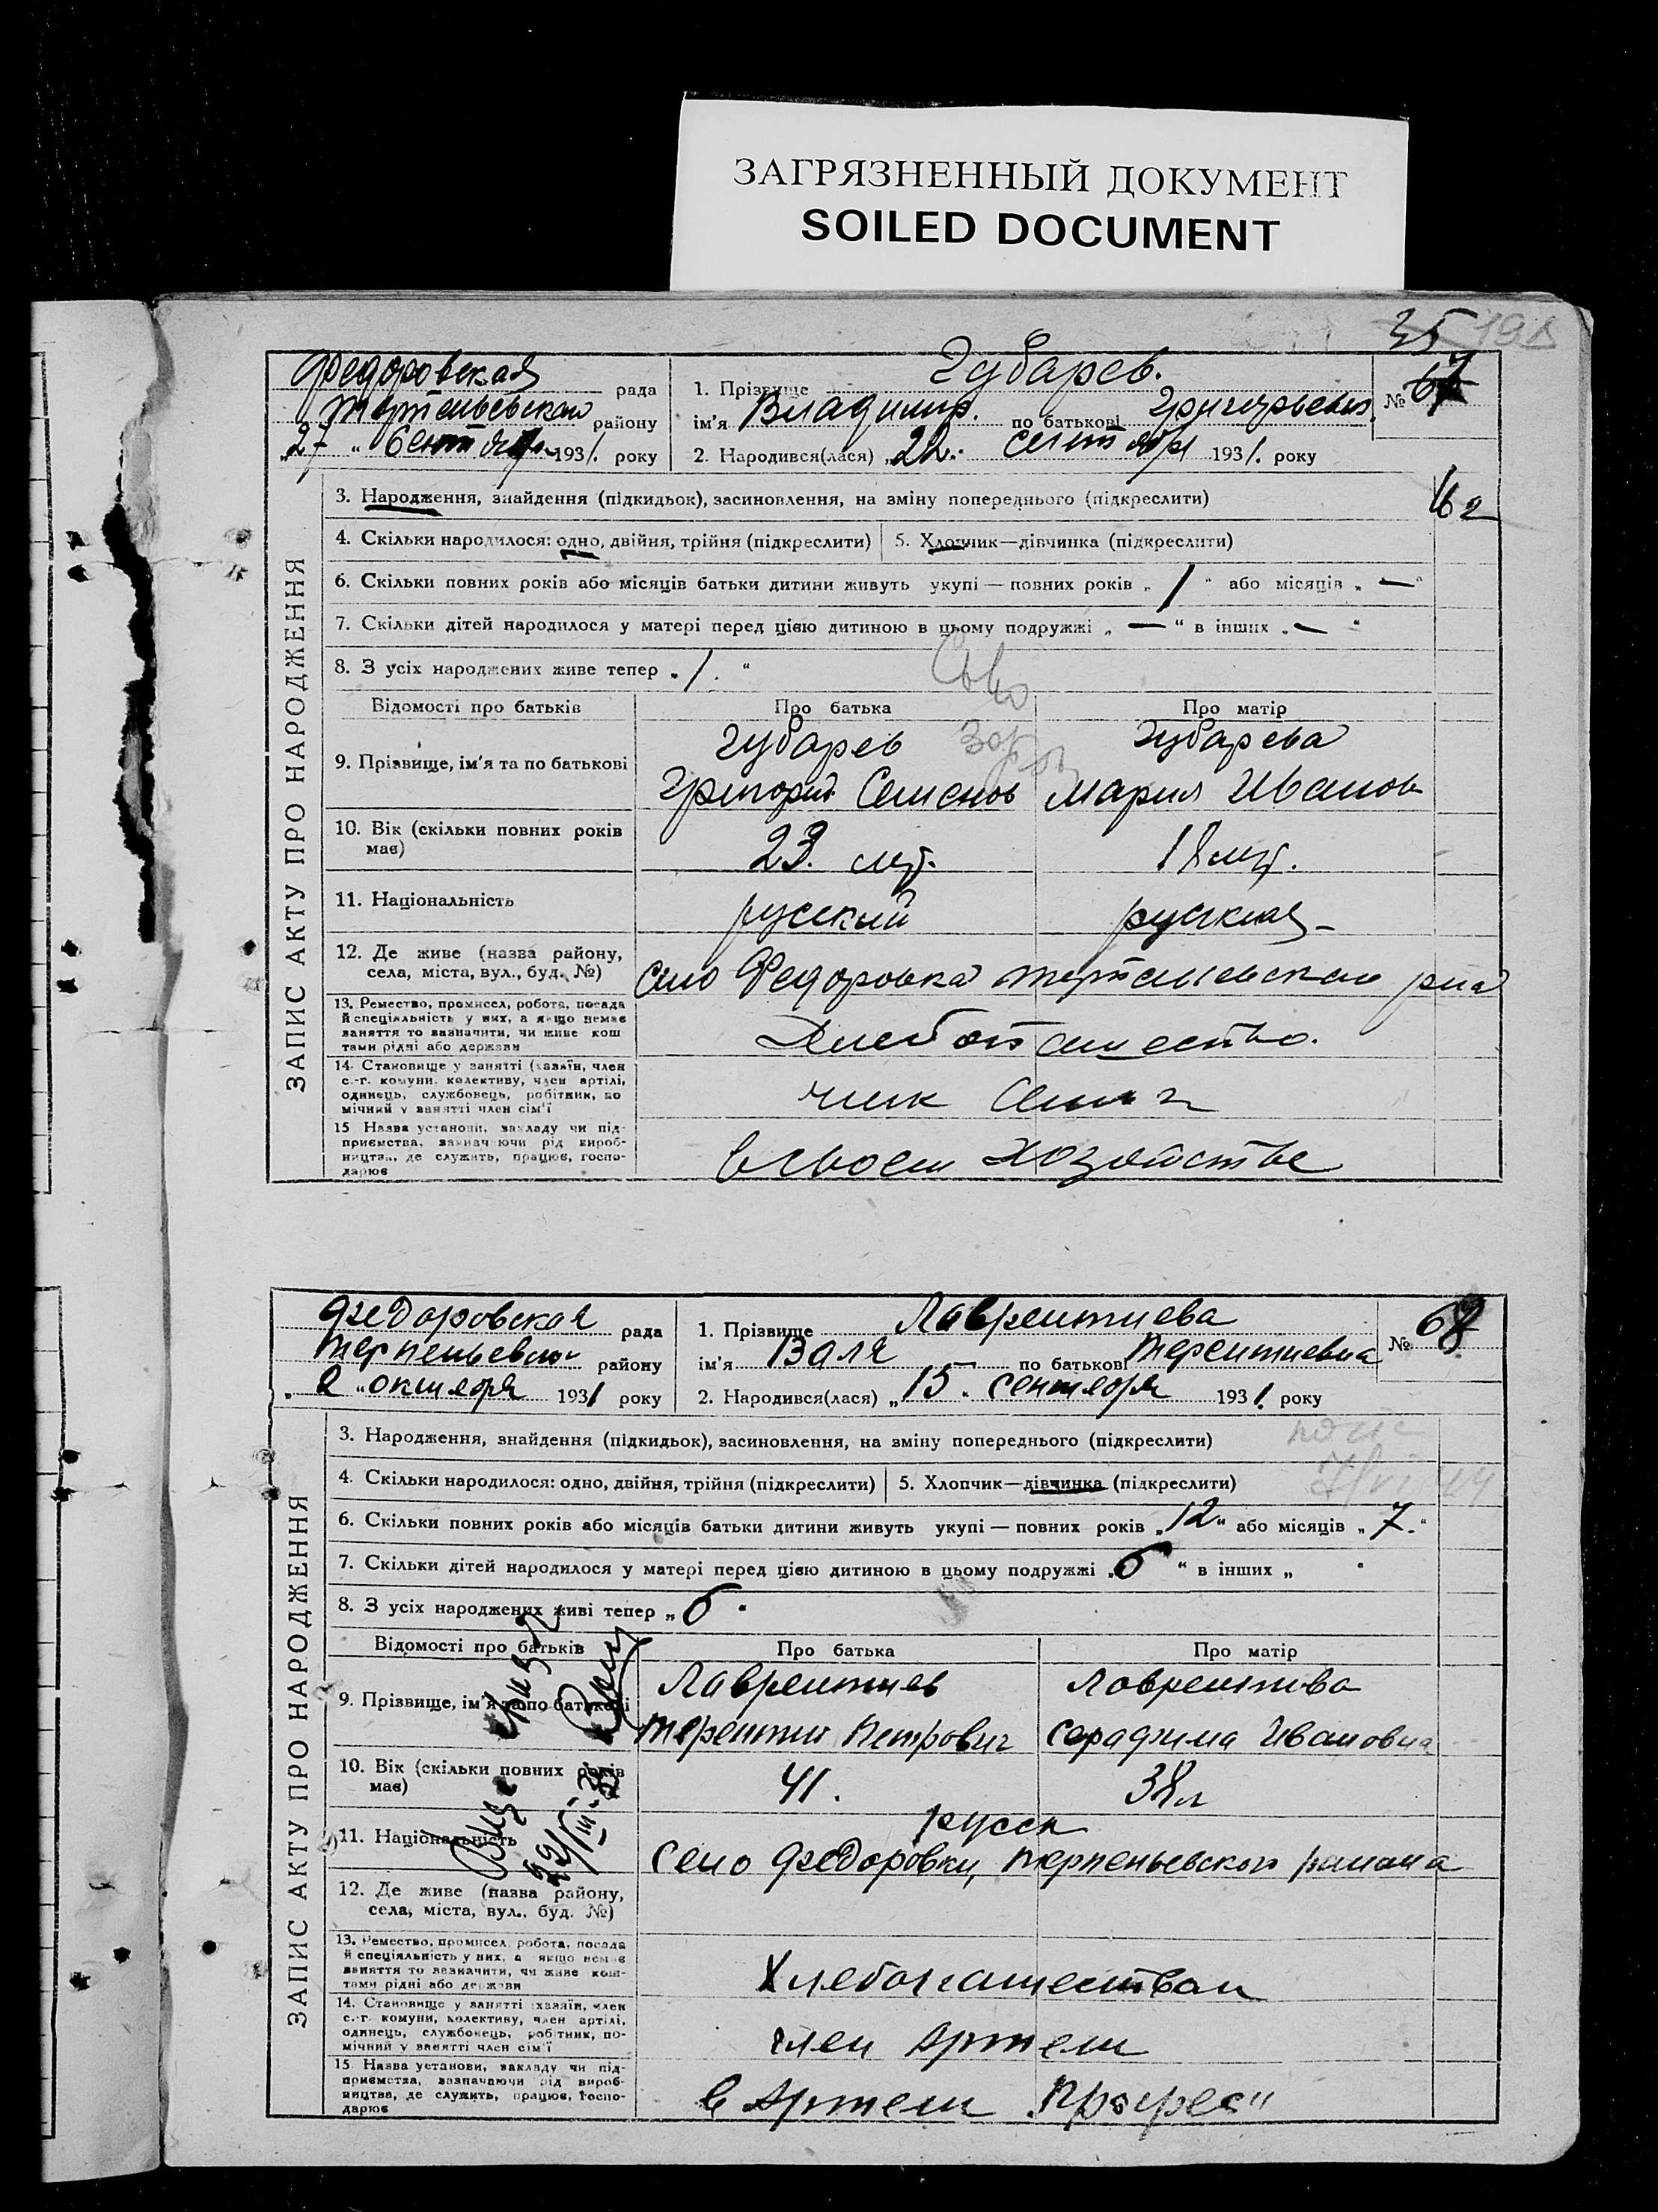 ЗАГРЯЗНЕННЫЙ ДОКУМЕНТ
SOILED DOCUMENT
35 198
Федоровская рада
района району
„27“ Сентября 1931. року
1. Прізвище Губарев.
ім'я Владимир. по батькові Григорьевич
2. Народився(лася) „22. сентября 1931. року
№ 67
ЗАПИС АКТУ ПРО НАРОДЖЕННЯ
3. Народження, знайдення (підкидьок), засиновлення, на зміну попереднього (підкреслити)
4. Скільки народилося: одно, двійня, трійня (підкреслити) 5. Хлопчик—дівчинка (підкреслити)
6. Скільки повних років або місяців батьки дитини живуть укупі — повних років „1“ або місяців „—“
7. Скільки дітей народилося у матері перед цією дитиною в цьому подружжі „—“ в інших „—“
8. З усіх народжених живе тепер „1.“
Відомості про батьків Про батька Про матір
9. Прізвище, ім'я та по батькові
Губарев Губарева
Григорий Семенов Мария Иванов
10. Вік (скільки повних років має)
23. лет. 18 лет.
11. Національність
русский русская
12. Де живе (назва району, села, міста, вул., буд. №)
Село Федоровка
13. Ремество, промисел, робота, посада й спеціяльність у них, а якщо немає заняття то зазначити, чи живе коштами рідні або держави
14. Становище у занятті (хазяїн, член с.-г. комуни, колективу, член артілі, одинець, службовець, робітник, помічний у занятті член сім'ї
15 Назва установи, закладу чи підприємства, зазначаючи рід виробництва, де служить, працює, господарює
в своем хозяйстве
Федоровская рада
Терпеньевско району
„2“ октября 1931 року
1. Прізвище Лаврентиева
ім'я Валя по батькові Терентиевна
2. Народився(лася) „15. сентября 1931. року
№ 68
ЗАПИС АКТУ ПРО НАРОДЖЕННЯ
3. Народження, знайдення (підкидьок), засиновлення, на зміну попереднього (підкреслити)
4. Скільки народилося: одно, двійня, трійня (підкреслити) 5. Хлопчик—дівчинка (підкреслити)
6. Скільки повних років або місяців батьки дитини живуть укупі — повних років „12“ або місяців „7.“
7. Скільки дітей народилося у матері перед цією дитиною в цьому подружжі „6“ в інших „ “
8. З усіх народжених живі тепер „6.
Відомості про батьків Про батька Про матір
9. Прізвище, ім'я та по батькові
Лаврентиев Лаврентива
Терентий Петрович Серафима Ивановна
10. Вік (скільки повних років має)
41. 38 л
11. Національність
русск
Село Федоровки, Терпеньевского района
12. Де живе (назва району, села, міста, вул., буд. №)
13. Ремество, промисел, робота, посада й спеціяльність у них, а якщо немає заняття то зазначити, чи живе коштами рідні або держави
Хлебопашеством
14. Становище у занятті (хазяїн, член с.-г. комуни, колективу, член артілі, одинець, службовець, робітник, помічний у занятті член сім'ї
член Артели
15. Назва установи, закладу чи підприємства, зазначаючи рід виробництва, де служить, працює, господарює
в Артели „Прогрес“